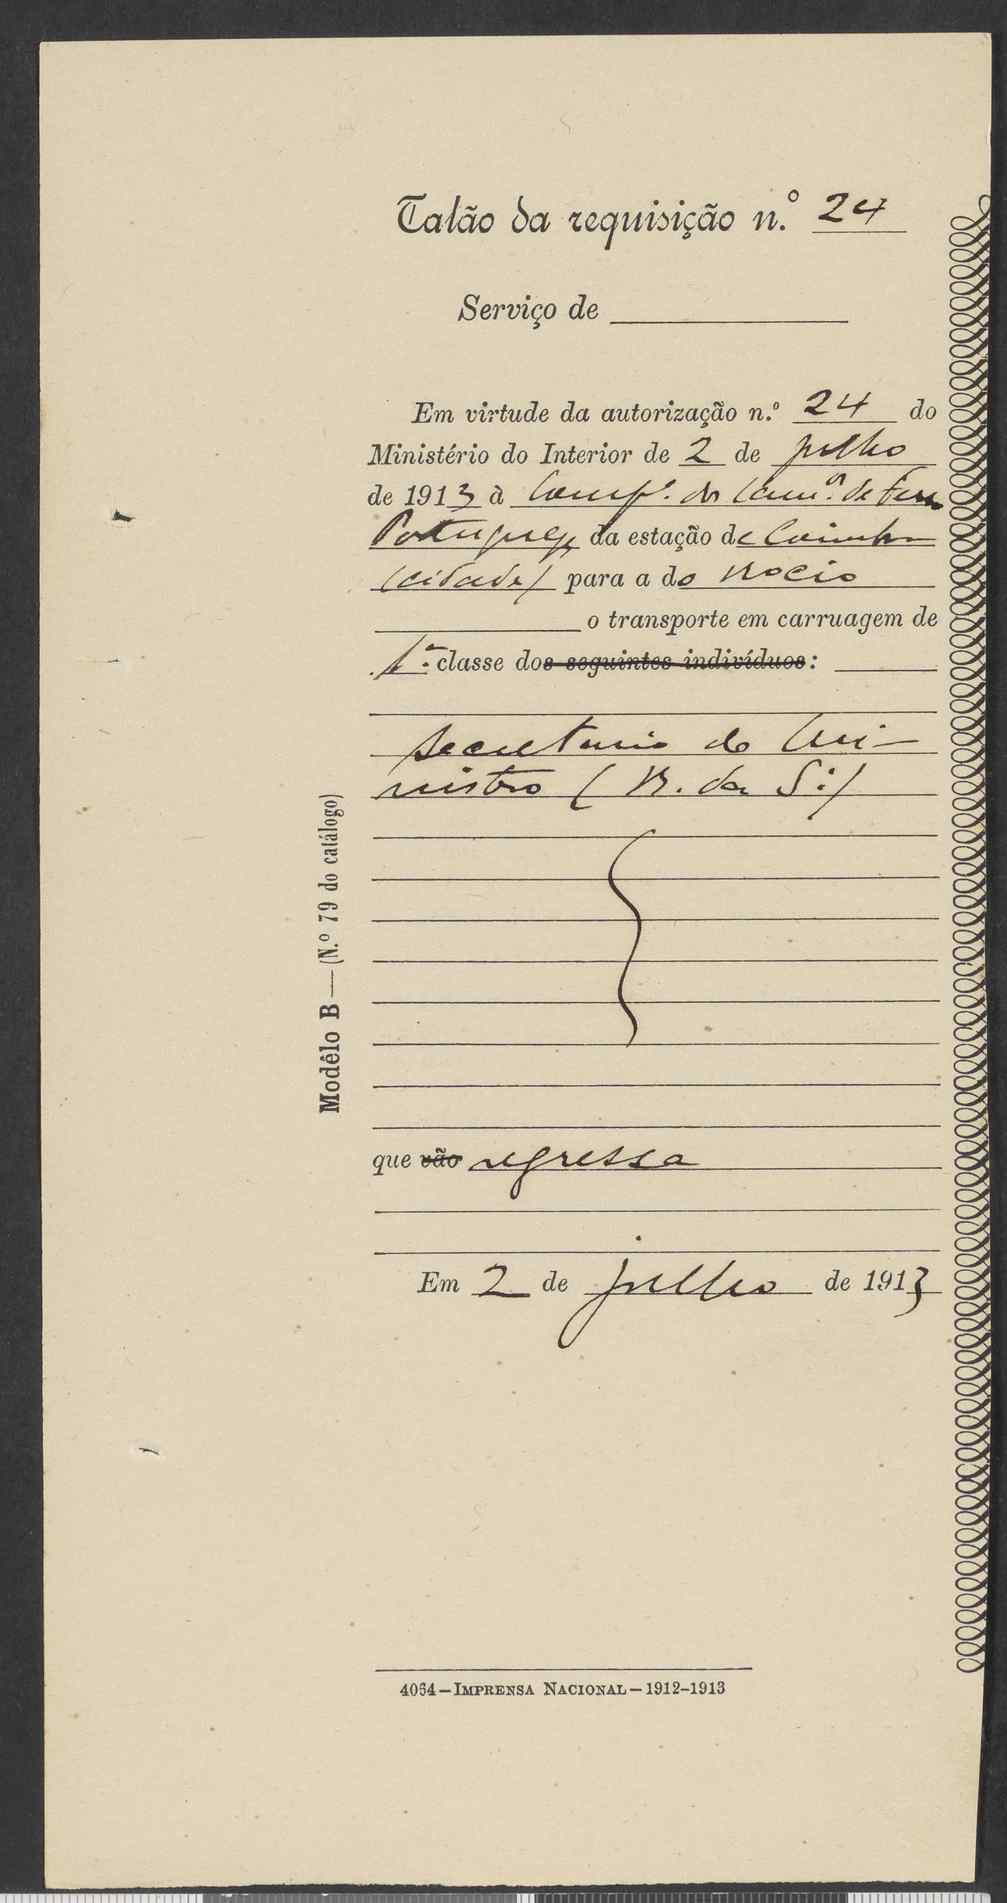 Talão da requisição n.º 24
Serviço de
Em virtude da autorização n.º 24 do
Ministério do Interior de 2 de julho
de 1913 à Comp.ª dos Cam.os de Ferro
Portugueses da estação de Coimbra
(cidade) para a do Rocio
o transporte em carruagem de
1.ª classe dos seguintes indivíduos:
secretario do Mi-
nistro (R. da S.)
que vão regressa
Em 2 de julho de 1913
Modêlo B—(N.º 79 do catálogo)
4064—Imprensa Nacional—1912-1913